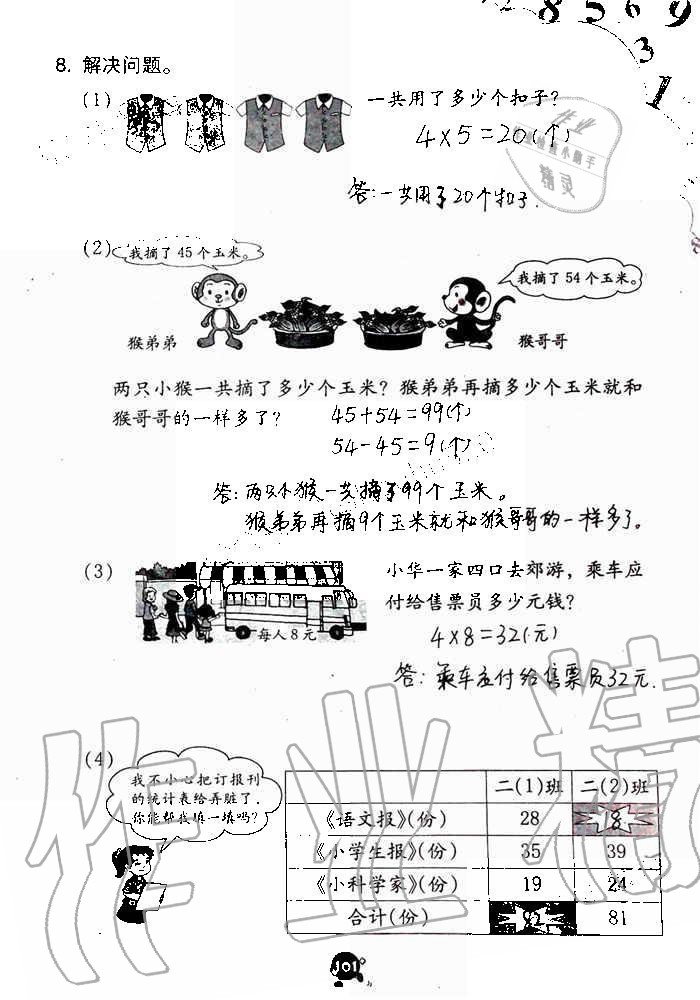 2 8 5 6 9
3
1
8. 解决问题。
(1)
一共用了多少个扣子?
4×5=20(个)
答:一共用了20个扣子.
(2)
我摘了45个玉米。
我摘了54个玉米。
猴弟弟
猴哥哥
两只小猴一共摘了多少个玉米?猴弟弟再摘多少个玉米就和
猴哥哥的一样多了?
45+54=99(个)
54-45=9(个)
答:两只小猴一共摘了99个玉米。
猴弟弟再摘9个玉米就和猴哥哥的一样多了。
(3)
每人8元
小华一家四口去郊游,乘车应
付给售票员多少元钱?
4×8=32(元)
答:乘车应付给售票员32元.
(4)
我不小心把订报刊
的统计表给弄脏了,
你能帮我填一填吗?
二(1)班 二(2)班
《语文报》(份) 28 18
《小学生报》(份) 35 39
《小科学家》(份) 19 24
合计(份) 82 81
101
作业精灵